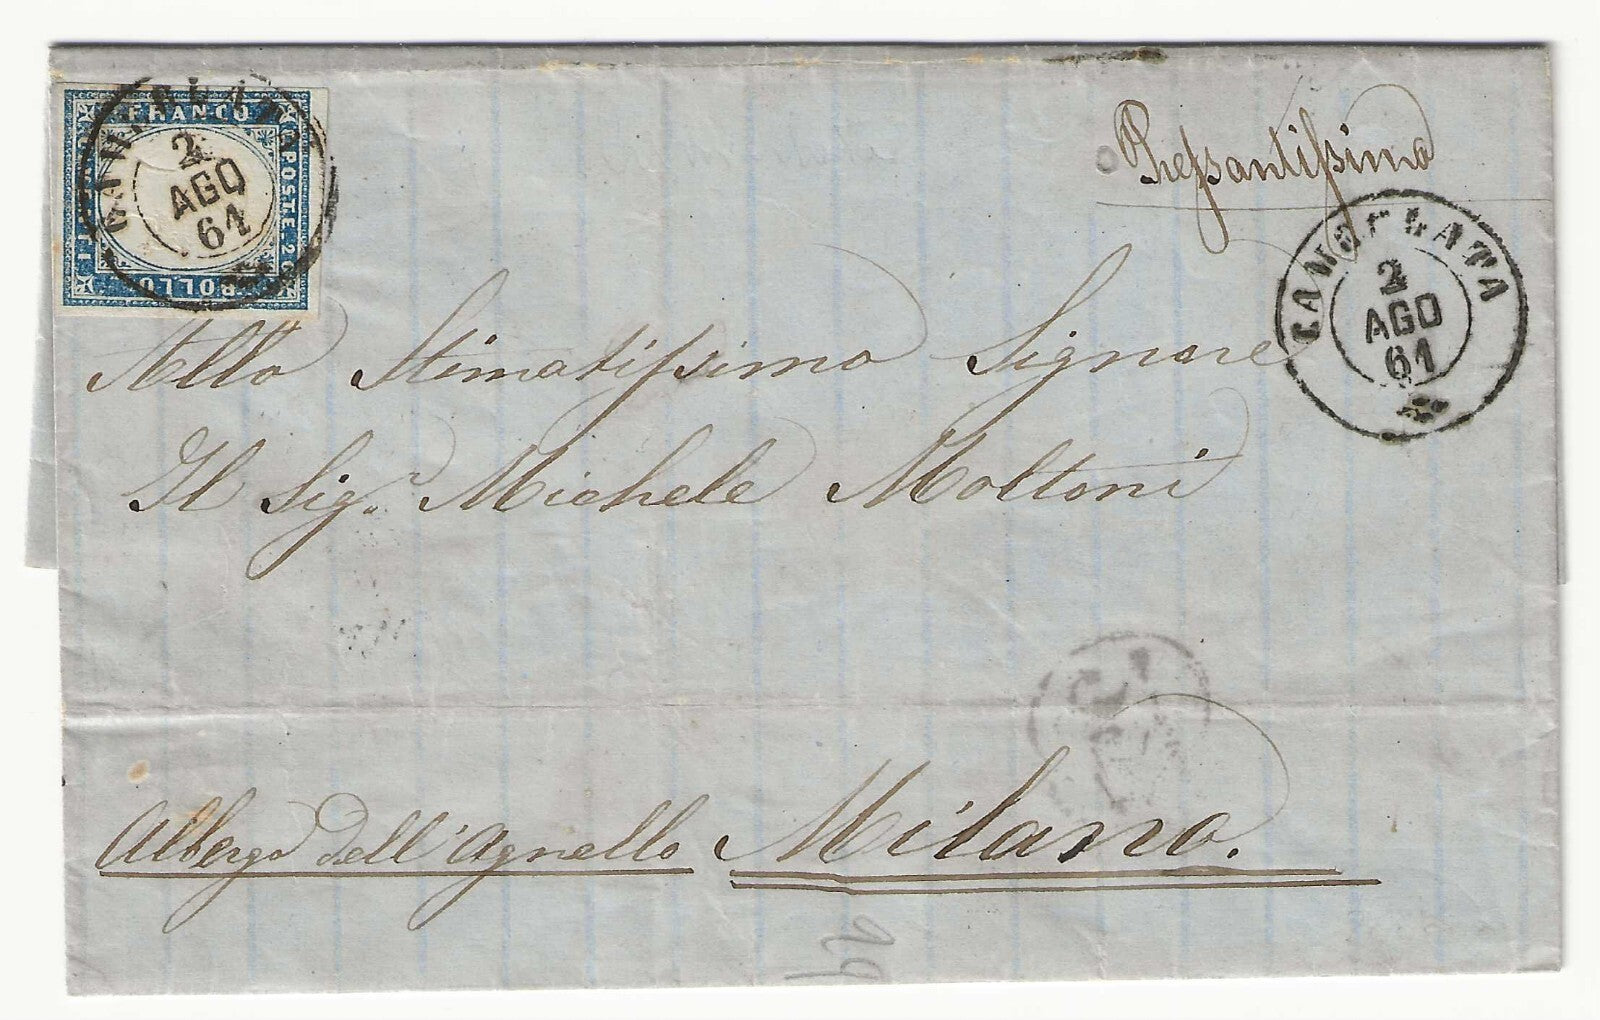 FRANCO
POSTE
BOLLO
CAMERLATA
2
AGO
61
Pressantissimo
CAMERLATA
2
AGO
61
Allo Stimatissimo Signore
Il Sig.r Michele Moltoni
Albergo dell'Agnello Milano.